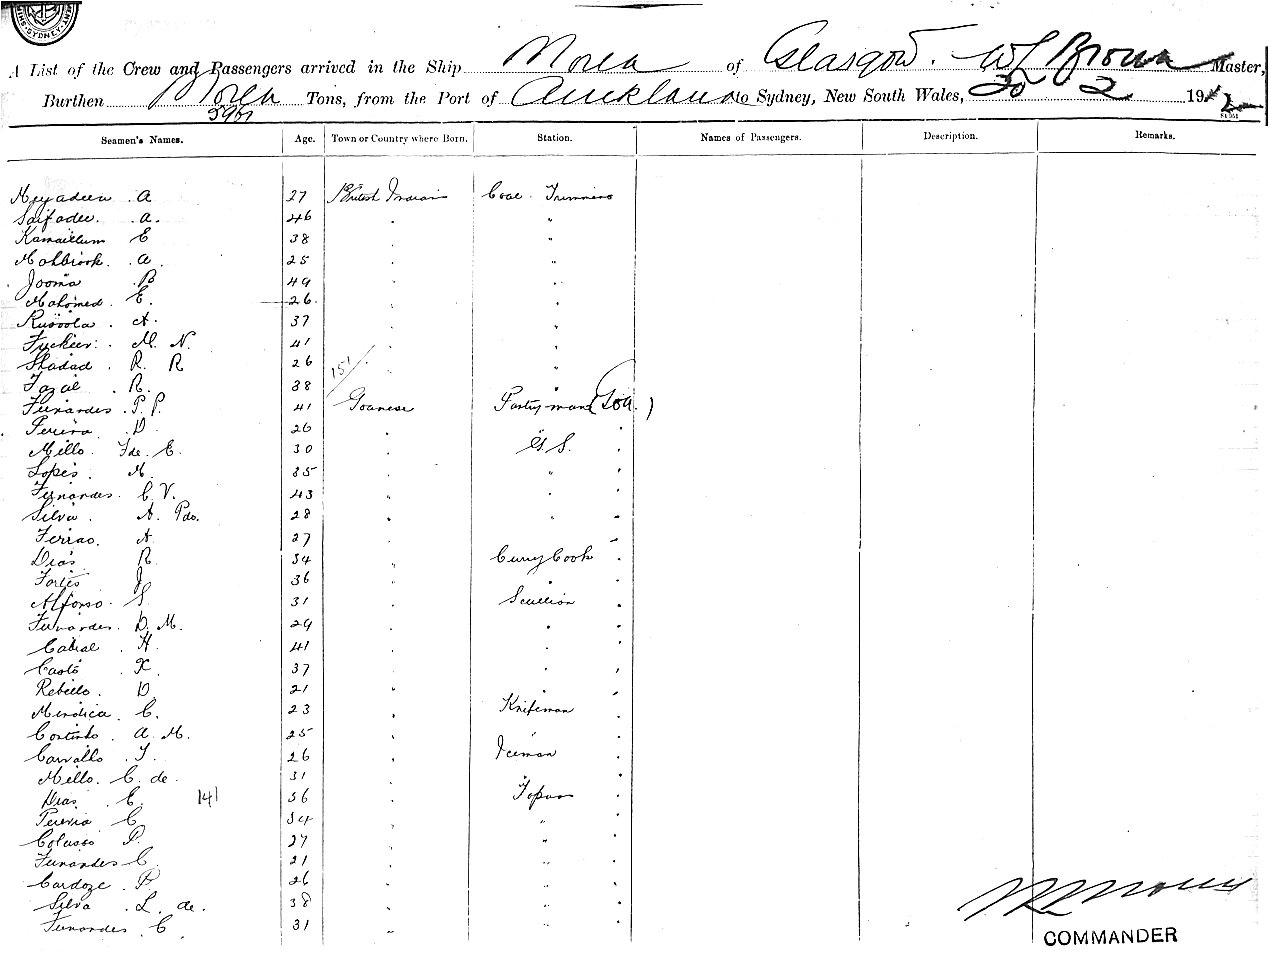 SYDNEY
A List of the Crew and Passengers arrived in the Ship Morea of Glasgow. WL Brown Master,
Burthen Morea Tons, from the Port of Auckland to Sydney, New South Wales, 20 2 1912
Seamen's Names. Age. Town or Country where Born. Station. Names of Passengers. Description. Remarks.
A 27 British Indian Coal Trimmers
A. 46 "
E 38 "
A 25 "
Jooma B 49 "
Mahomed E. 26 "
A. 37 "
M. N. 41 "
Shadad R. R 26 "
Fazal R. 38 "
151
Fernandes P. P. 41 Goanese Pastryman (Goa.)
Pereira D 26
Mello F de E. 30 G.S.
Lopes M. 35 "
Fernandes C. V. 43 "
Silva A. Pdo. 28 "
Ferrao. A 27
Dias R. 34 Curry Cook
Fortes J 36 "
Alfonso S 31 Scullion
Fernandes D. M. 29 "
Cabral H. 41 "
Casto X. 37 "
Rebello. D 21 "
Mendica C. 23 Knifeman
Cortinho A. M. 25 "
Carvallo J. 26 Iceman
Mello. C. de 31
Dias C. 141 56 Topas
Pereira C 34 "
Colasso P. 27 "
Fernandes C. 21 "
Cardoze P 26 "
Silva L. de. 38 "
Fernandes C 31 "
COMMANDER